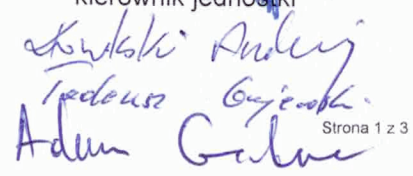 kierownik jednostki
Andrzej
Tadeusz Gajewski
Adam
Strona 1 z 3